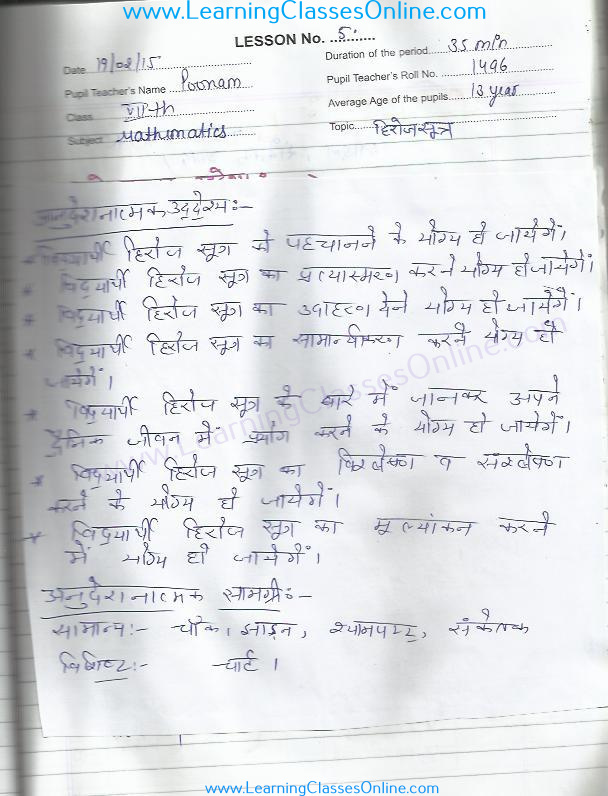 www.LearningClassesOnline.com
LESSON No. ..5...........
Date 19/02/15 Duration of the period 35 min
Pupil Teacher's Name Poonam Pupil Teacher's Roll No. 1496
Class VIIth Average Age of the pupils 13 year
Subject Mathematics Topic हिरोज सूत्र
अनुदेशनात्मक उद्देश्य:-
* विद्यार्थी हिरोज सूत्र को पहचानने के योग्य हो जायेगें।
* विद्यार्थी हिरोज सूत्र का प्रत्यास्मरण करने योग्य हो जायेगें।
* विद्यार्थी हिरोज सूत्र का उदाहरण देने योग्य हो जायेगें।
* विद्यार्थी हिरोज सूत्र का सामान्यीकरण करने योग्य हो
जायेगें।
* विद्यार्थी हिरोज सूत्र के बारे में जानकर अपने
दैनिक जीवन में प्रयोग करने के योग्य हो जायेगें।
* विद्यार्थी हिरोज सूत्र का विश्लेषण व संश्लेषण
करने के योग्य हो जायेगें।
* विद्यार्थी हिरोज सूत्र का मूल्यांकन करने
में योग्य हो जायेगें।
अनुदेशनात्मक सामग्री:-
सामान्य:- चॉक, झाड़न, श्यामपट्ट, संकेतक
विशिष्ट:- चार्ट।
www.LearningClassesOnline.com
www.LearningClassesOnline.com